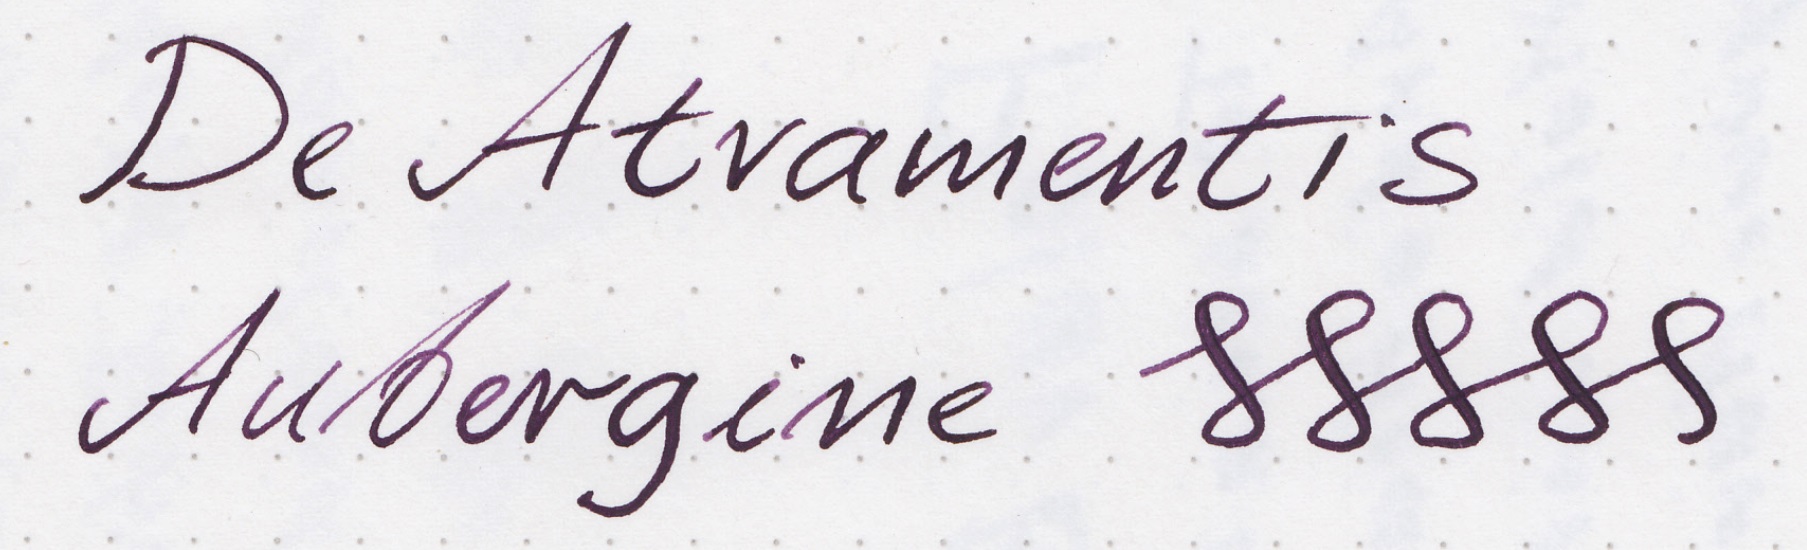 De Atramentis
Aubergine